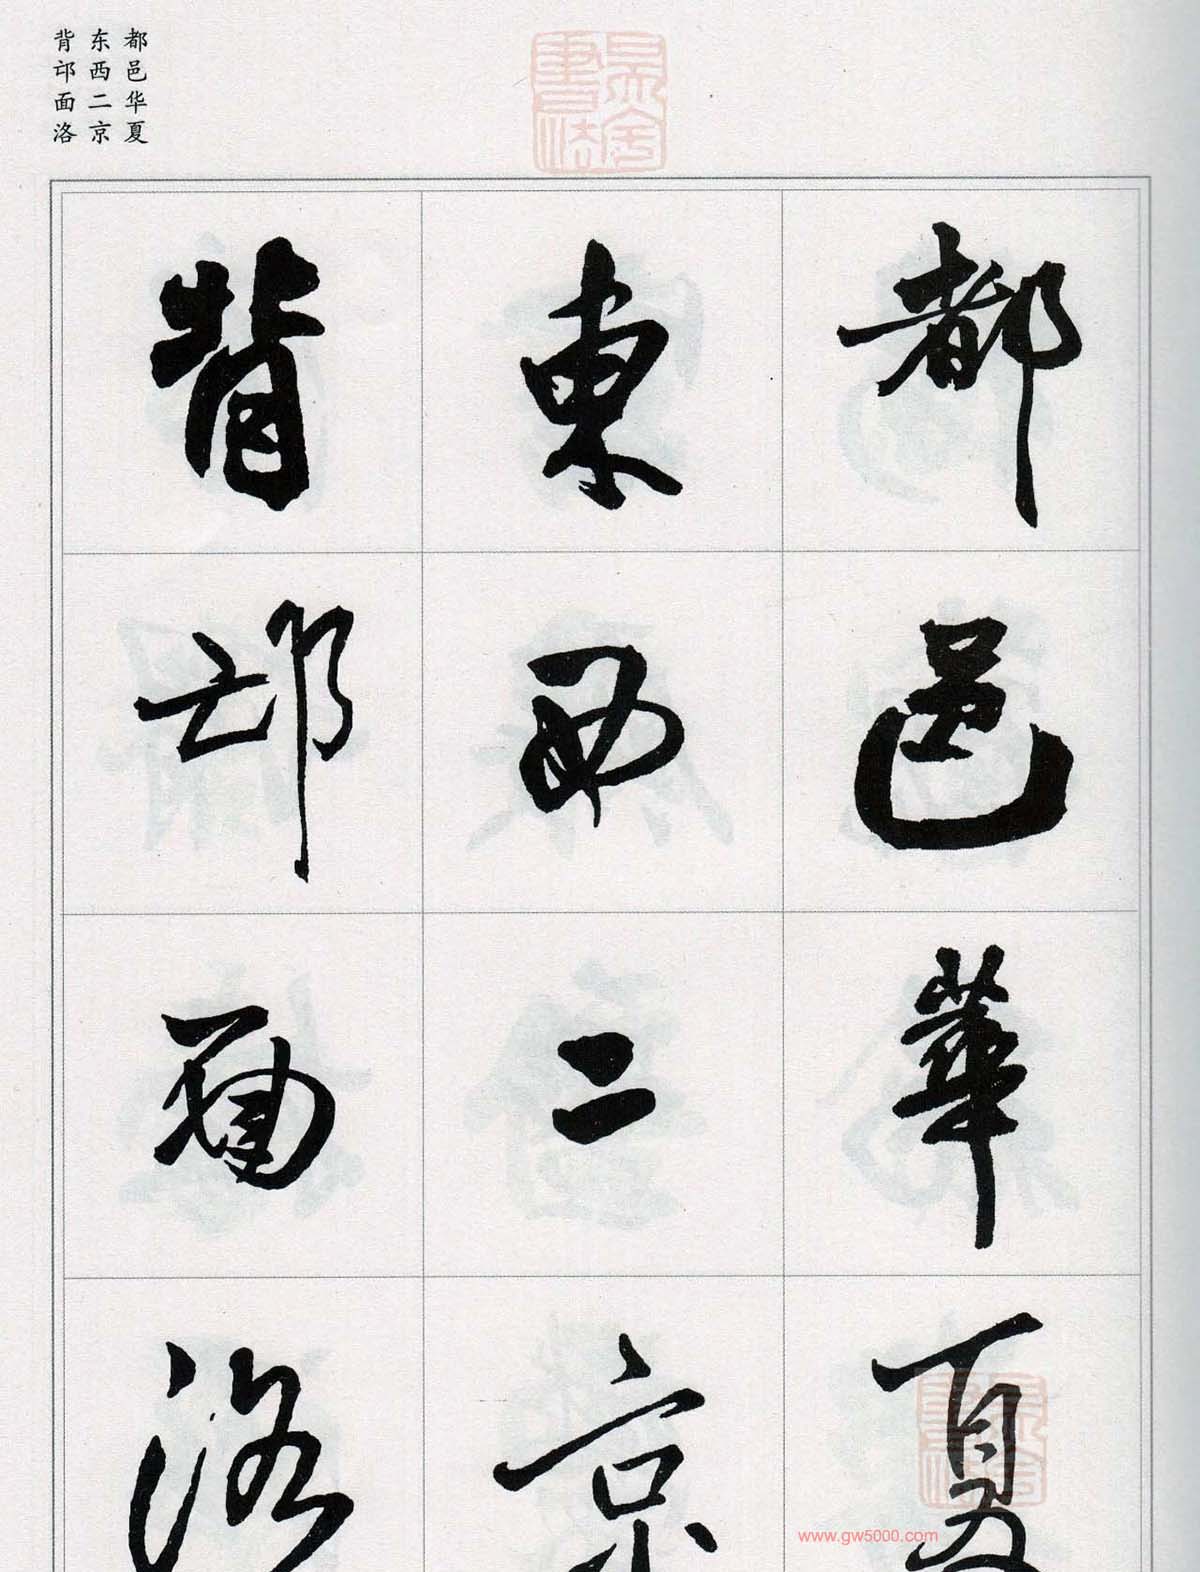 都邑华夏
东西二京
背邙面洛
都邑華夏
東西二京
背邙面洛
www.gw5000.com